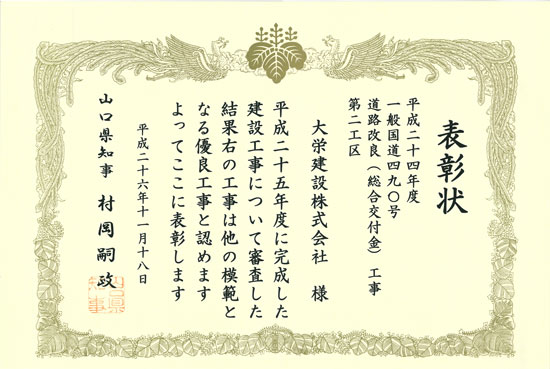 表彰状
平成二十四年度
一般国道四九〇号
道路改良（総合交付金）工事
第二工区
大栄建設株式会社　様
平成二十五年度に完成した
建設工事について審査した
結果右の工事は他の模範と
なる優良工事と認めます
よってここに表彰します
平成二十六年十一月十八日
山口県知事　村岡嗣政
山口県知事